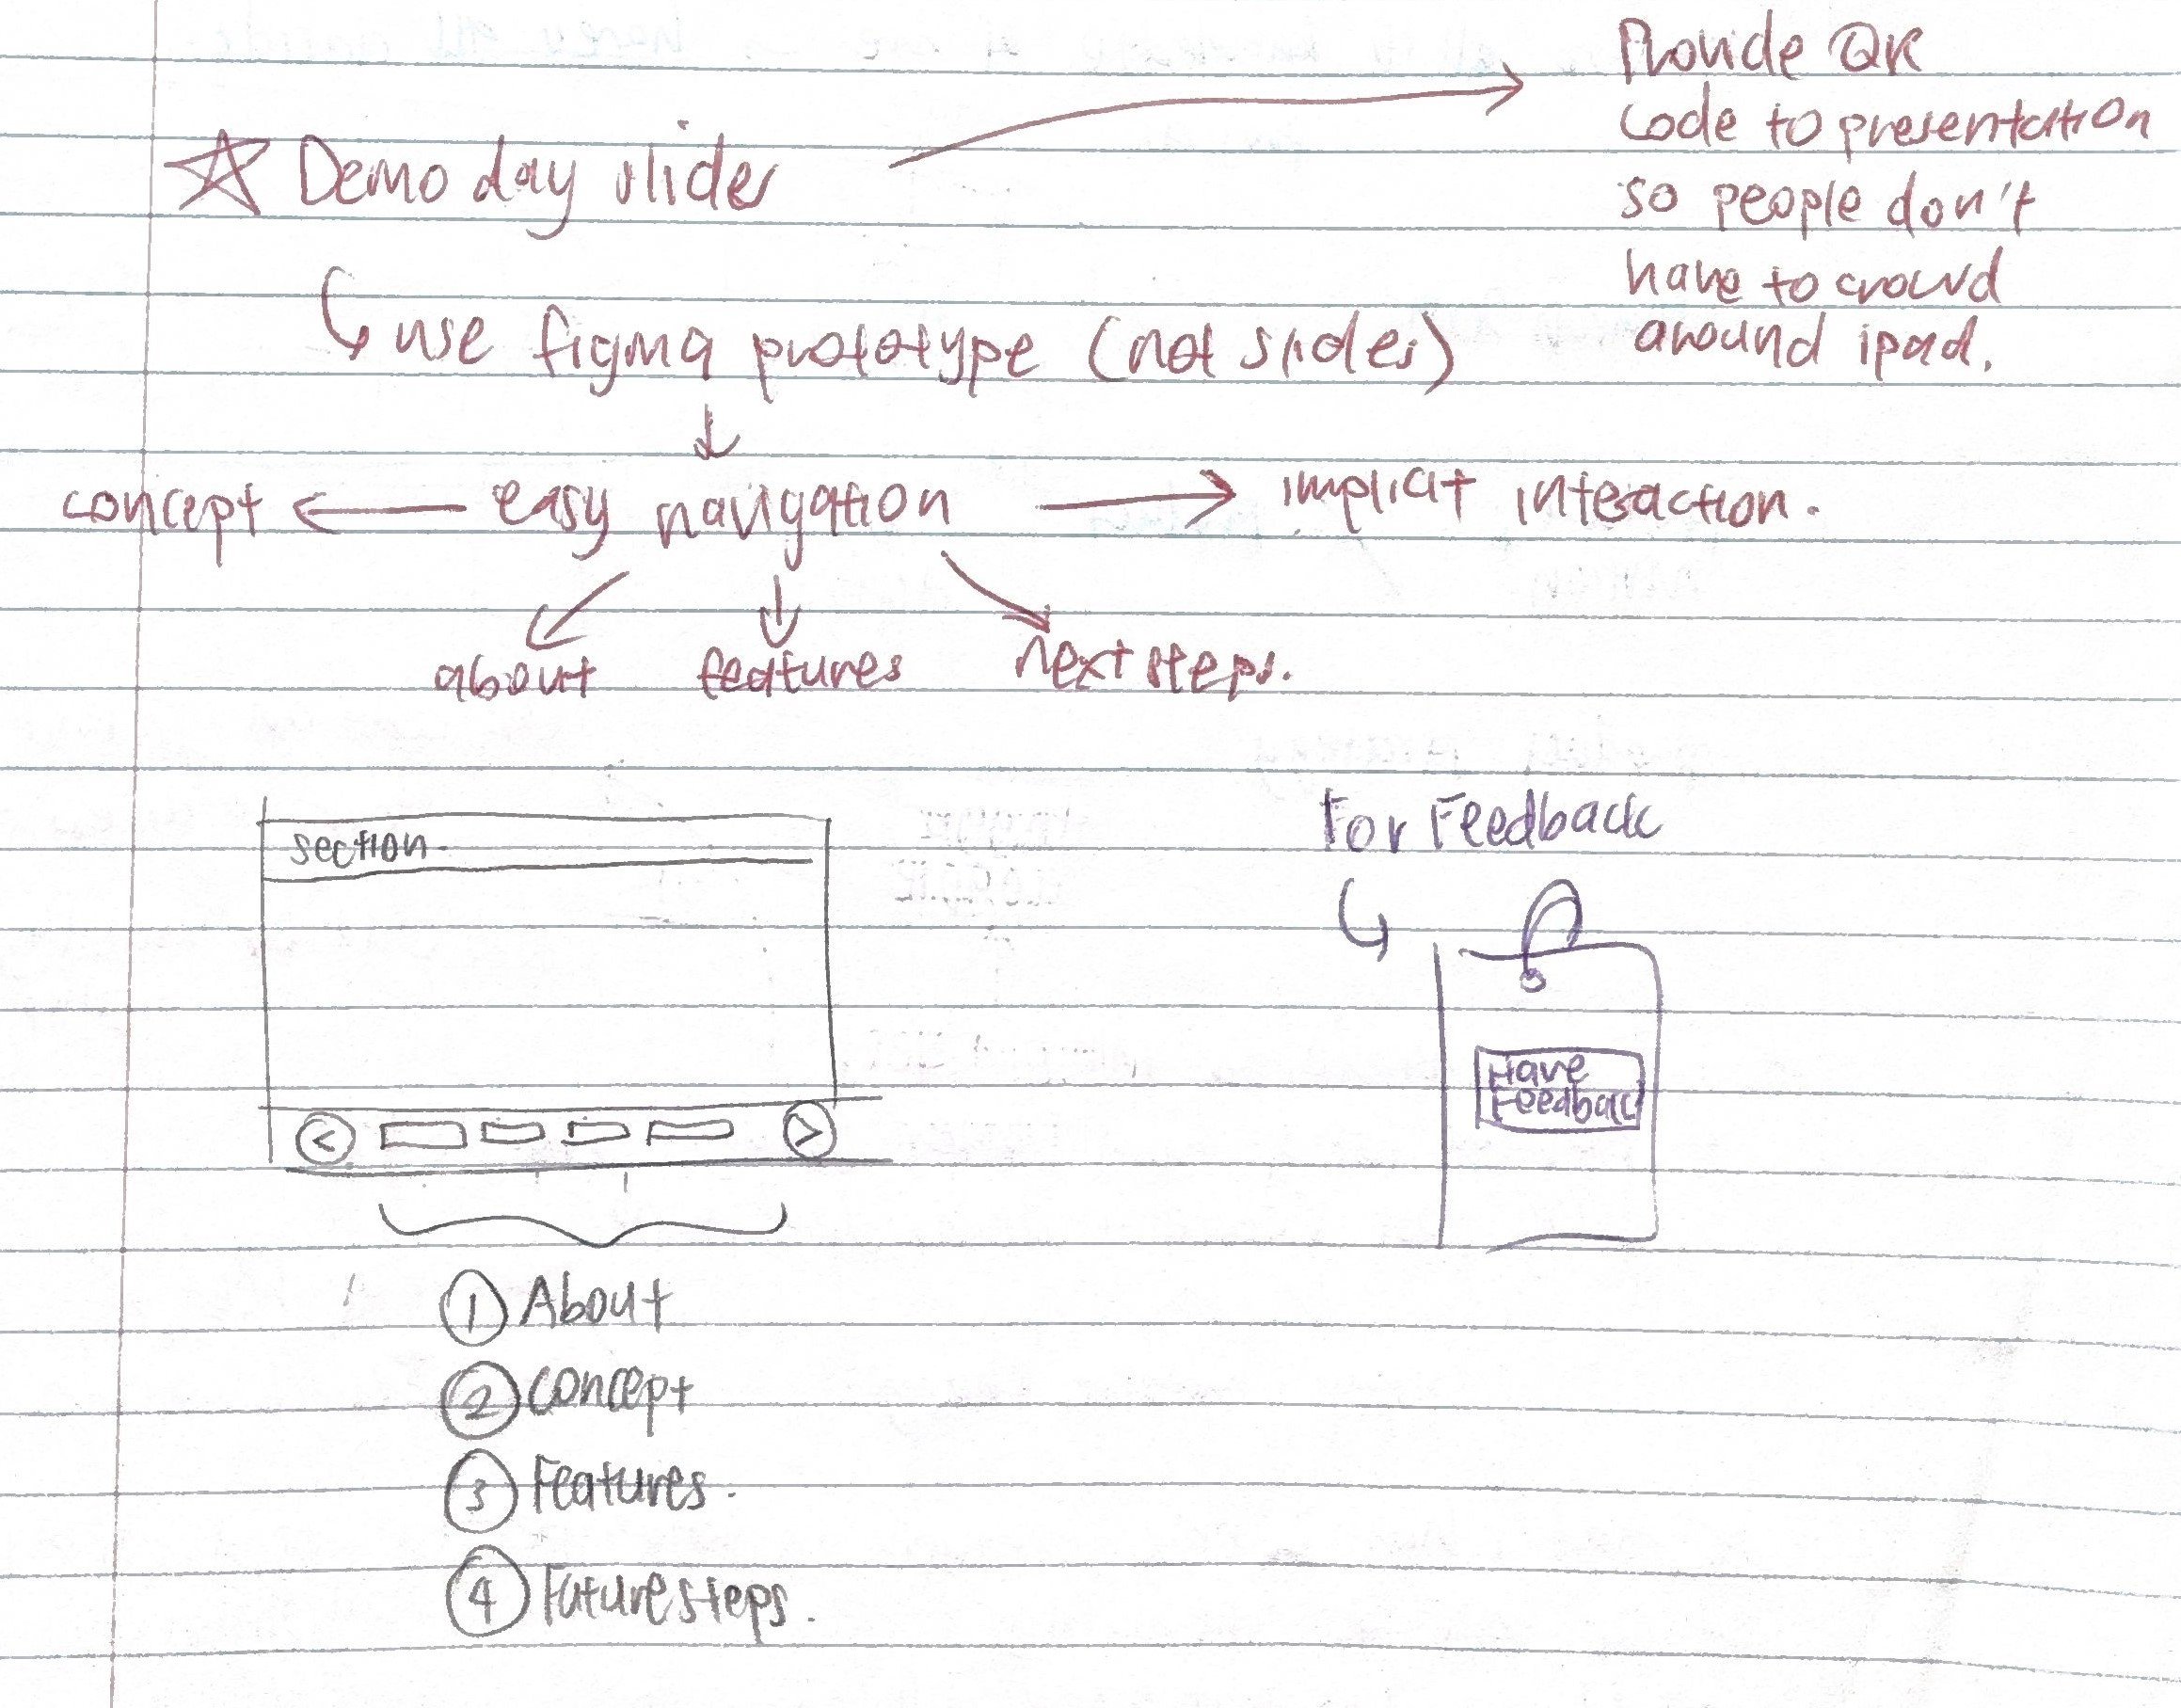 Provide QR
code to presentation
so people don't
have to crowd
around ipad.
Demo day slides
use figma prototype (not slides)
concept
easy navigation
implicit interaction.
about
features
next steps.
section
For Feedback
Have
Feedback
< >
1 About
2 Concept
3 Features.
4 Future steps.